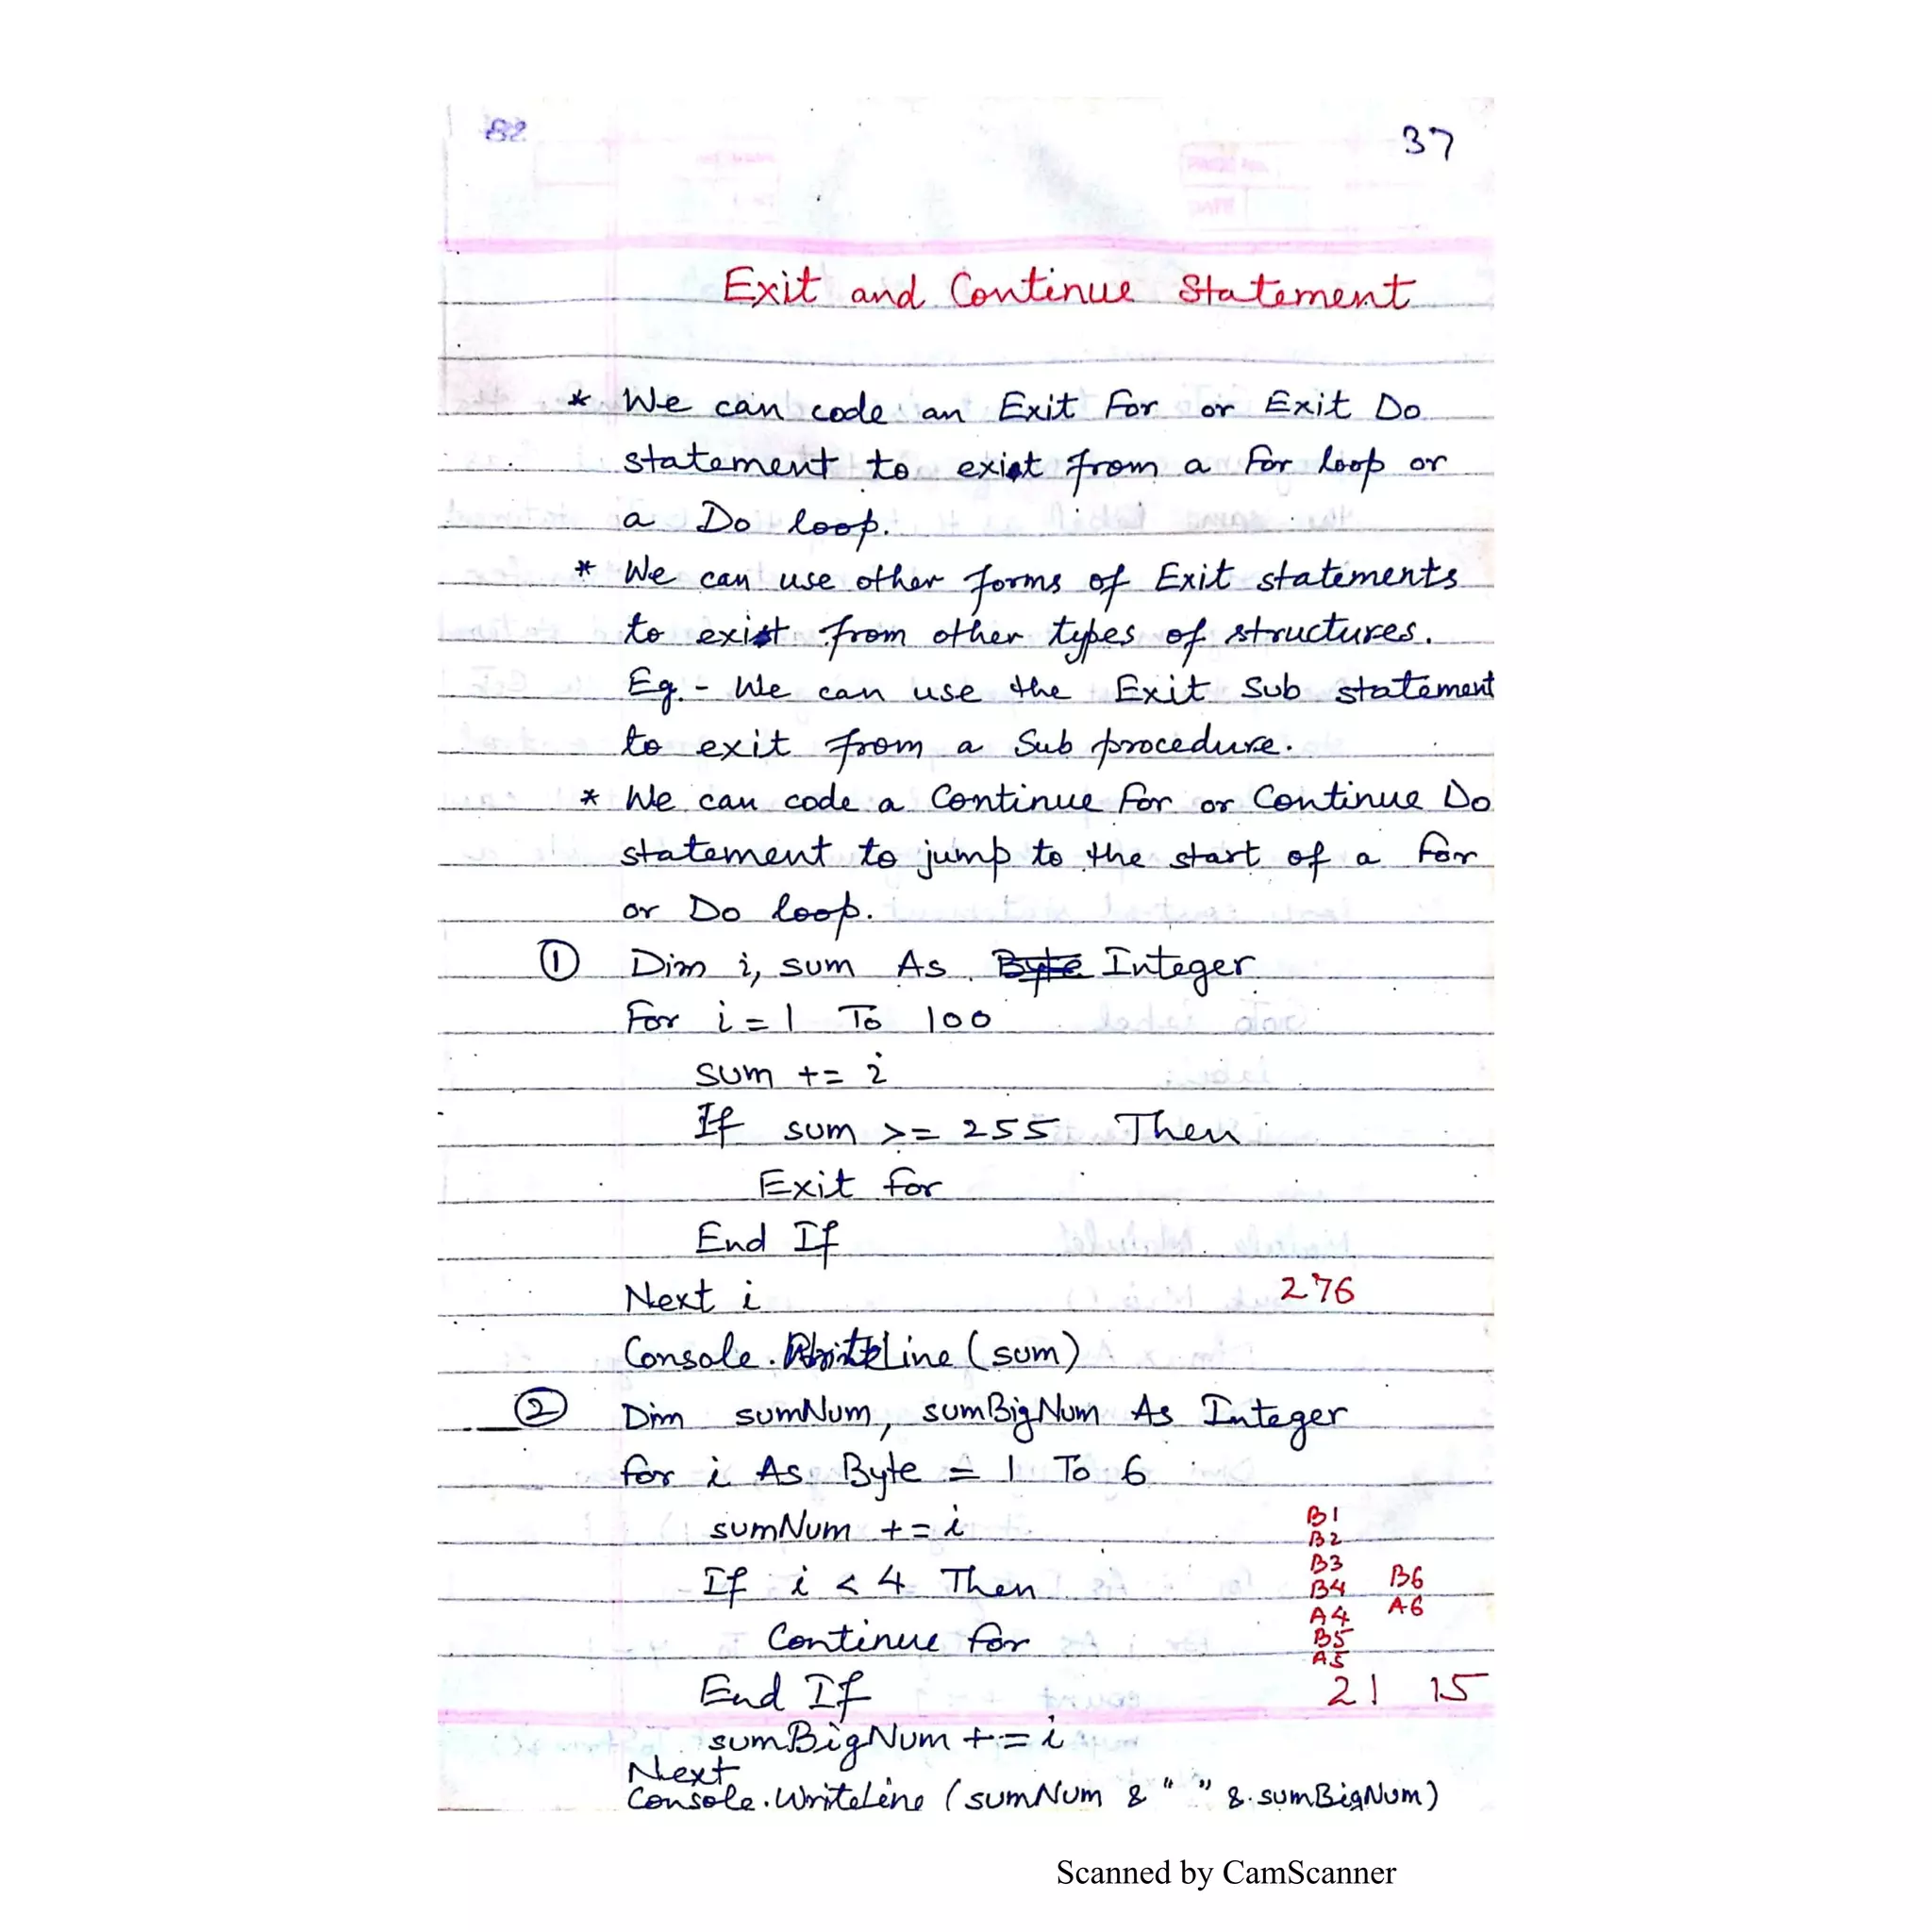 37
Exit and Continue Statement
* We can code an Exit For or Exit Do
statement to exit from a For loop or
a Do loop.
* We can use other forms of Exit statements
to exit from other types of structures.
Eg. - We can use the Exit Sub statement
to exit from a Sub procedure.
* We can code a Continue For or Continue Do
statement to jump to the start of a For
or Do loop.
① Dim i, sum As Byte Integer
For i = 1 To 100
sum += i
If sum >= 255 Then
Exit For
End If
Next i
276
Console.WriteLine (sum)
② Dim sumNum, sumBigNum As Integer
For i As Byte = 1 To 6
sumNum += i
If i < 4 Then
Continue For
End If
sumBigNum += i
Next
Console.WriteLine (sumNum & " " & sumBigNum)
B1
B2
B3
B4
A4
B5
A5
B6
A6
21 15
Scanned by CamScanner